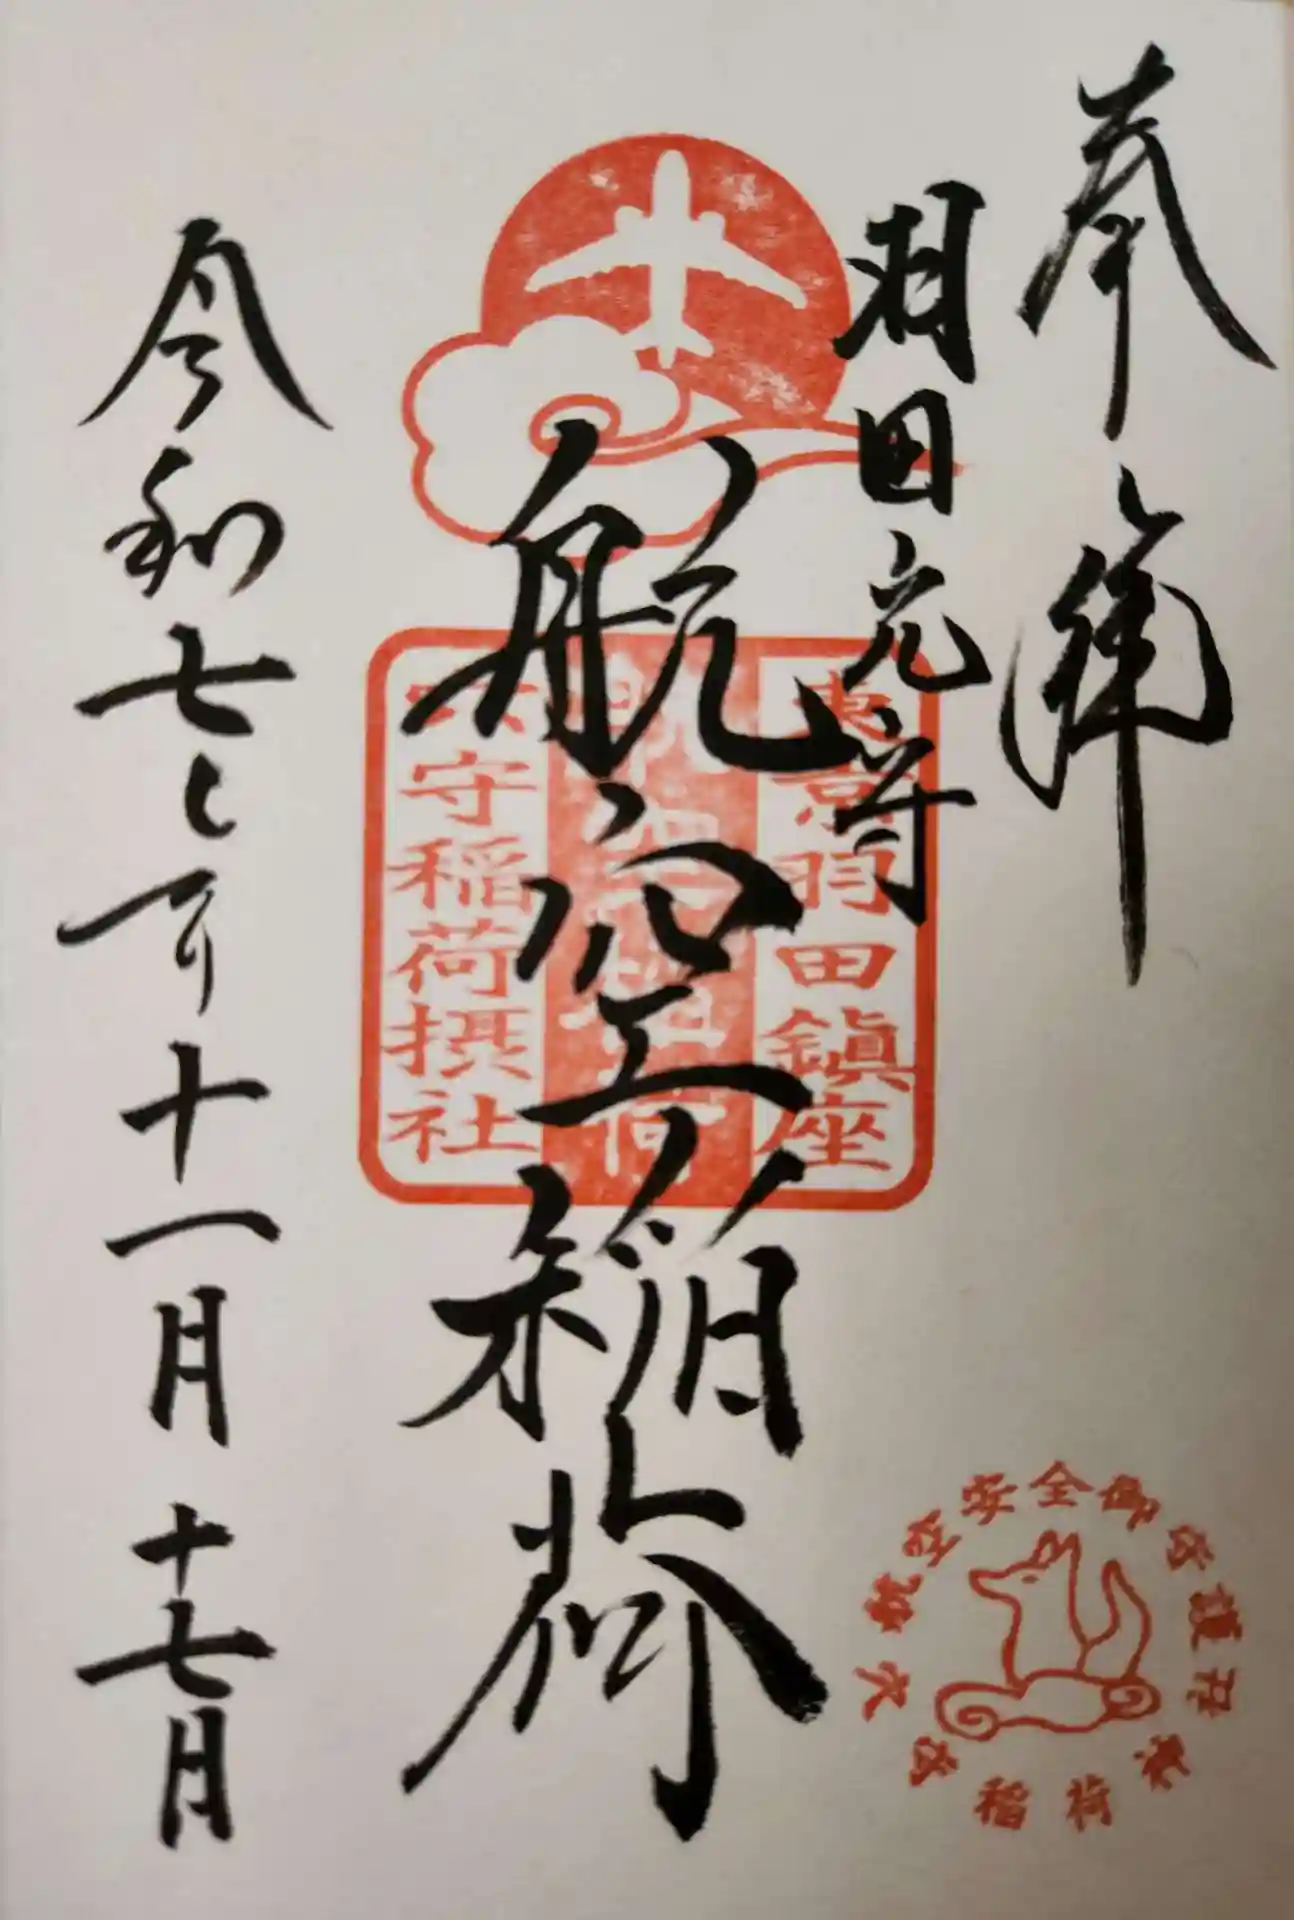 奉拝
羽田穴守
航空稲荷
令和七年十一月十七日
東京羽田鎮座
航空稲荷
穴守稲荷摂社
安全御守護
稲荷